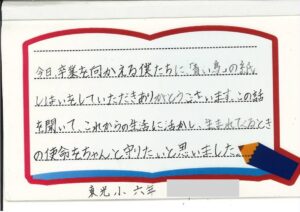 今日、卒業を向かえる僕たちに、「青い鳥」の紙
しばいをしていただきありがとうございます。この話
を聞いて、これからの生活に活かし、生まれてくるとき
の使命をちゃんと守りたいと思いました。
東光小 六年